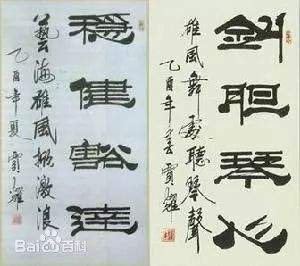 穩健豁達
藝海雄風掀激浪
乙酉年夏 賈耀
釰胆琴心
雄風舞聽琴聲
乙酉年 賈耀
Bai百科